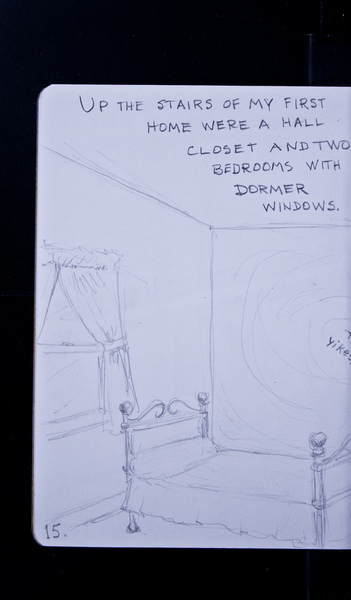 UP THE STAIRS OF MY FIRST
HOME WERE A HALL
CLOSET AND TWO
BEDROOMS WITH
DORMER
WINDOWS.
Yikes
15.